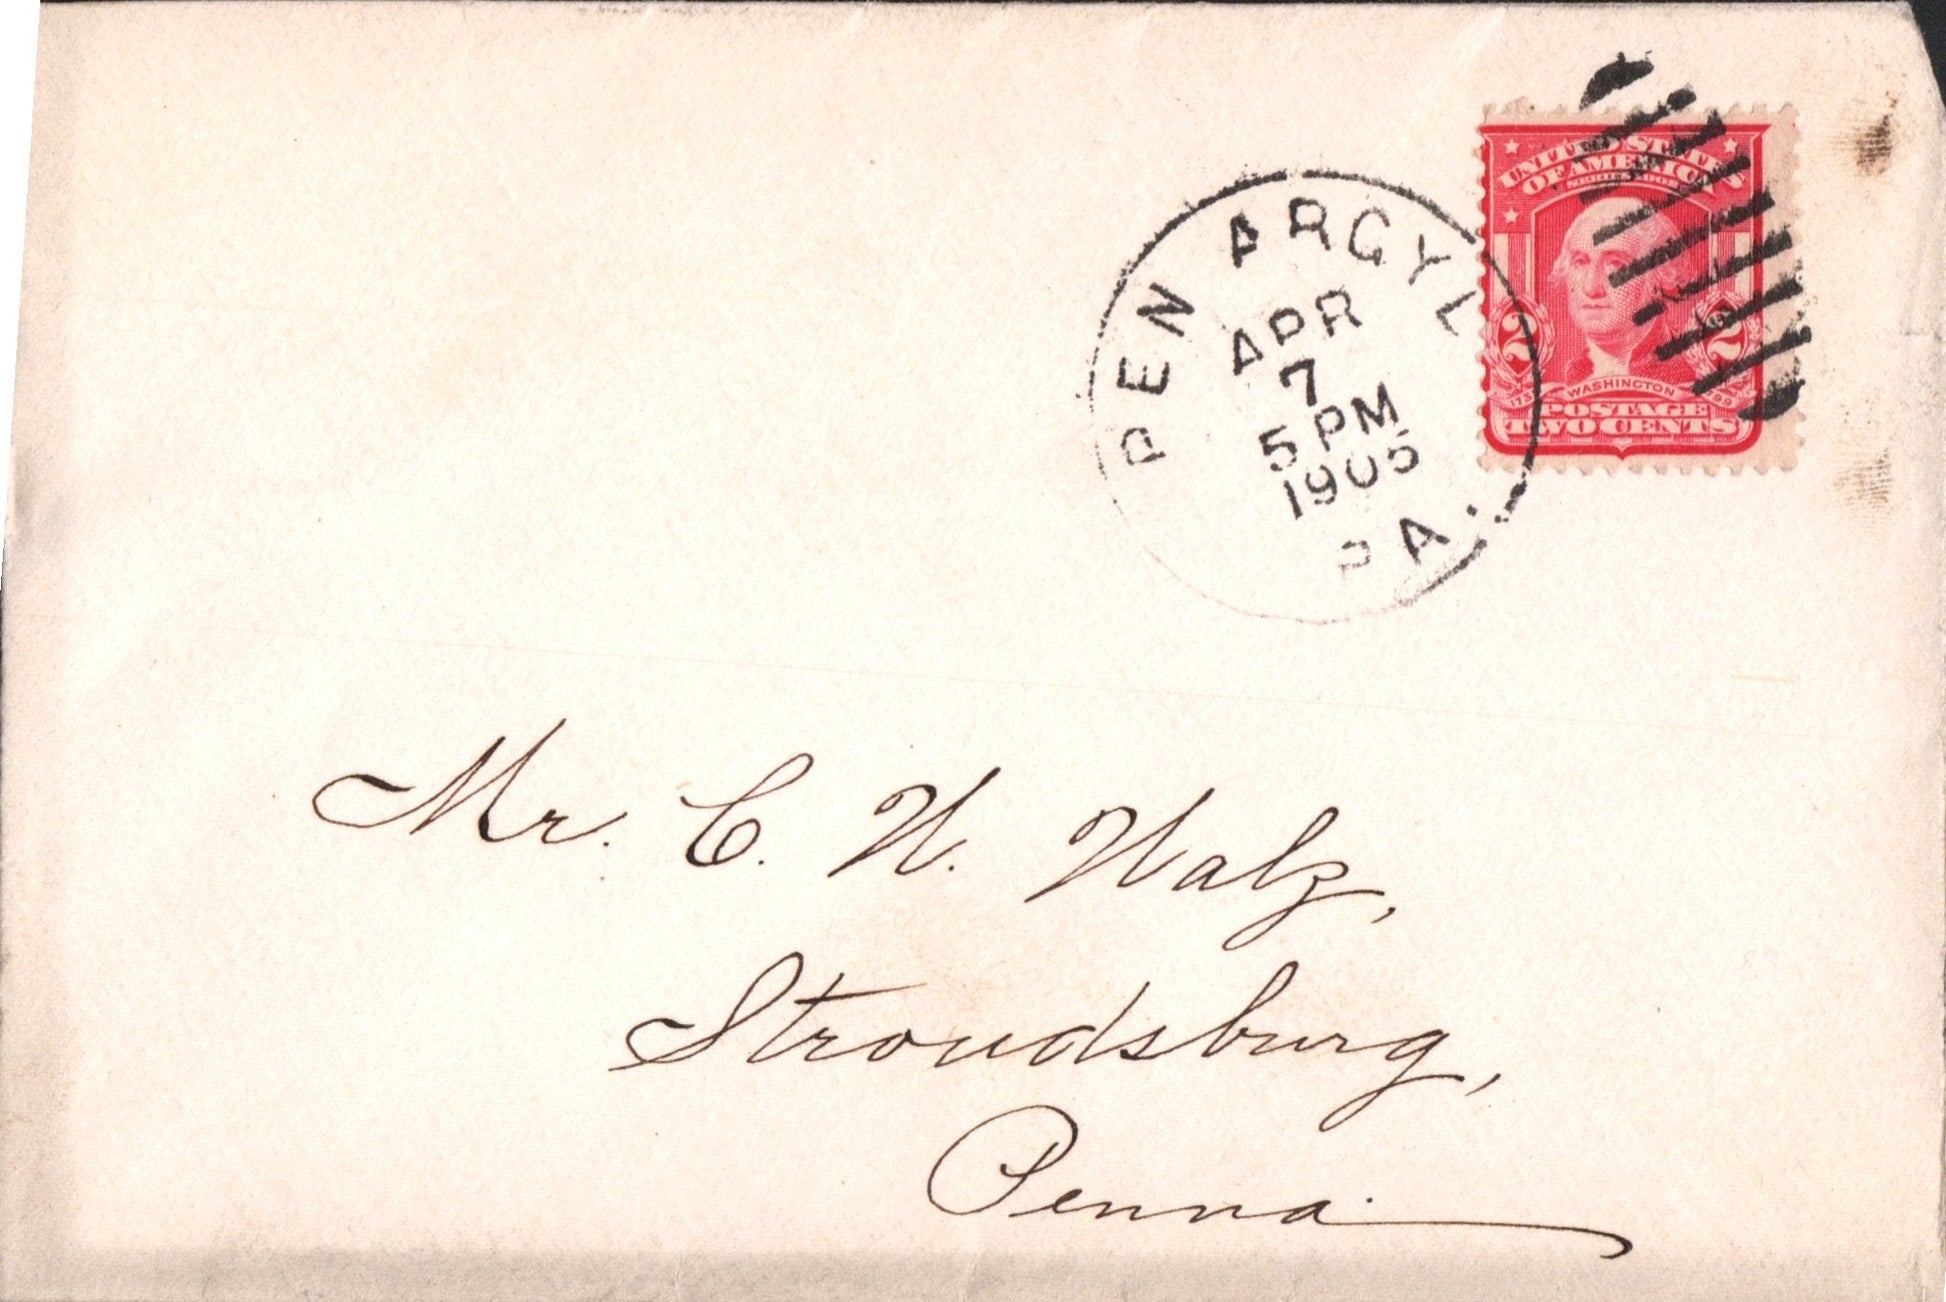 PEN ARGYL
APR
7
5 PM
1905
PA.
UNITED STATES
OF AMERICA
SERIES 1902
2 2
1732 WASHINGTON 1799
POSTAGE
TWO CENTS
Mr. C. W. Walz,
Stroudsburg,
Penna.